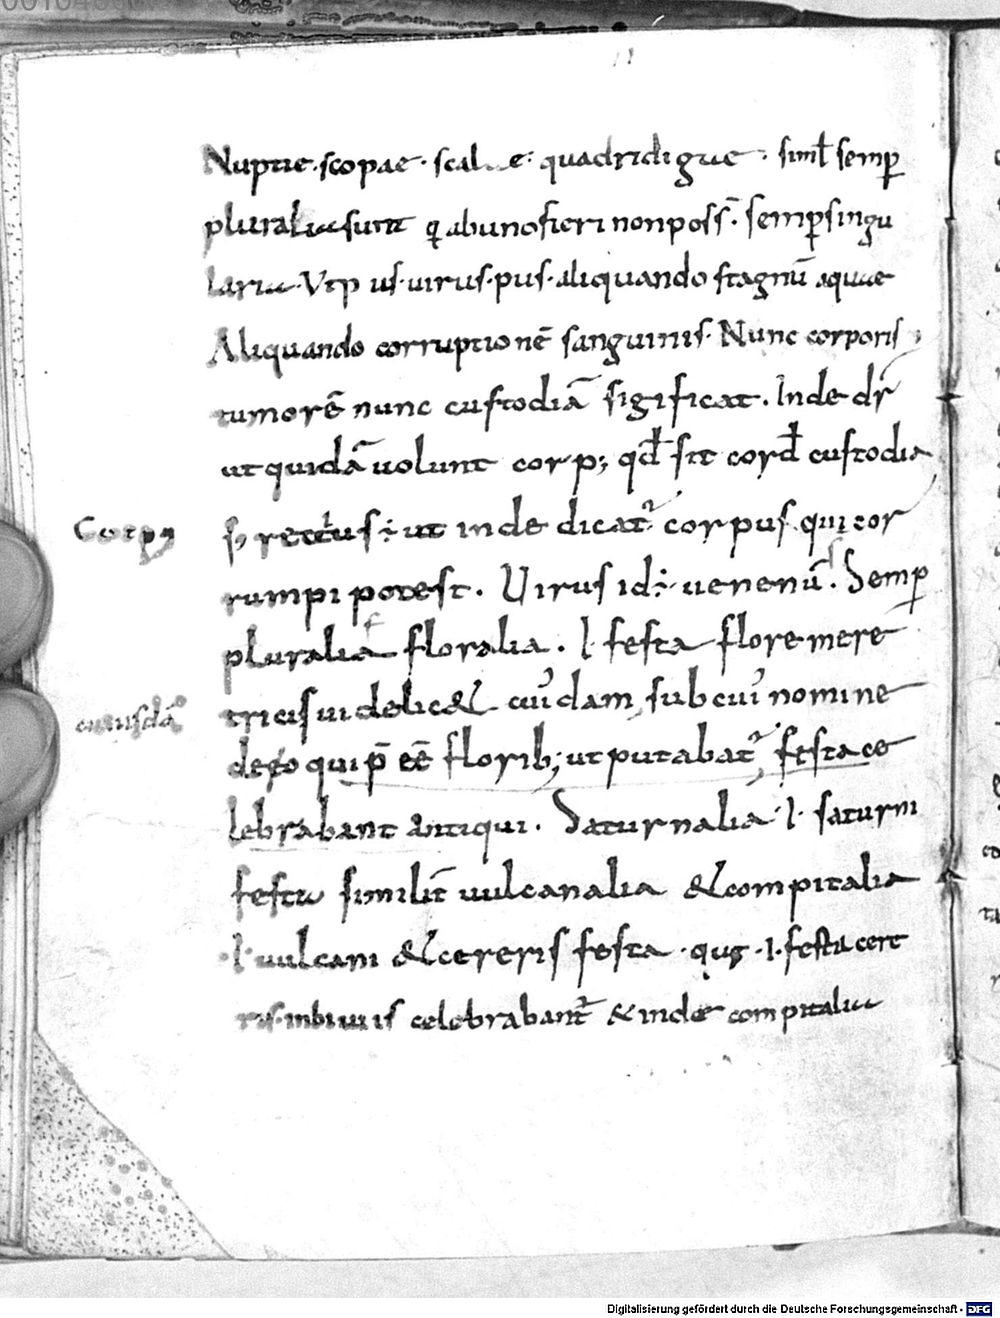 Nuptie · scopae · scal e · quadridigue · simƚ semp̲
pluralia sunt q ab uno fieri non poss̄ · semp̲ singu
laria · Vt p us · uirus · pus · aliquando stagnū aquae
Aliquando corruptionē sanguinis · Nunc corporis
tumorē nunc custodiā sigificat . Inde dr̄
ut quidā uolunt corp; qđ sit corđ custodia
Corpus
s; rectius ÷ ut inde dicat᷑ corpus qui cor
rumpi potest . Uirus id ÷ uenenū . Semp̲
pluralia floralia . ƚ festa flore mere
tricis uidelic& cui dam sub cui nomine
cuiusdā
dego qui p̄ eē florib; ut putabat᷑ festa ce
lebrabant antiqui . Saturnalia · ƚ · saturni
festa similit̄ uulcanalia & compitalia
· ƚ uulcani & cereris festa · quę · ƚ · festa cere
ris · in biuiis celebrabant᷑ & inde compitalia
Digitalisierung gefördert durch die Deutsche Forschungsgemeinschaft - DFG